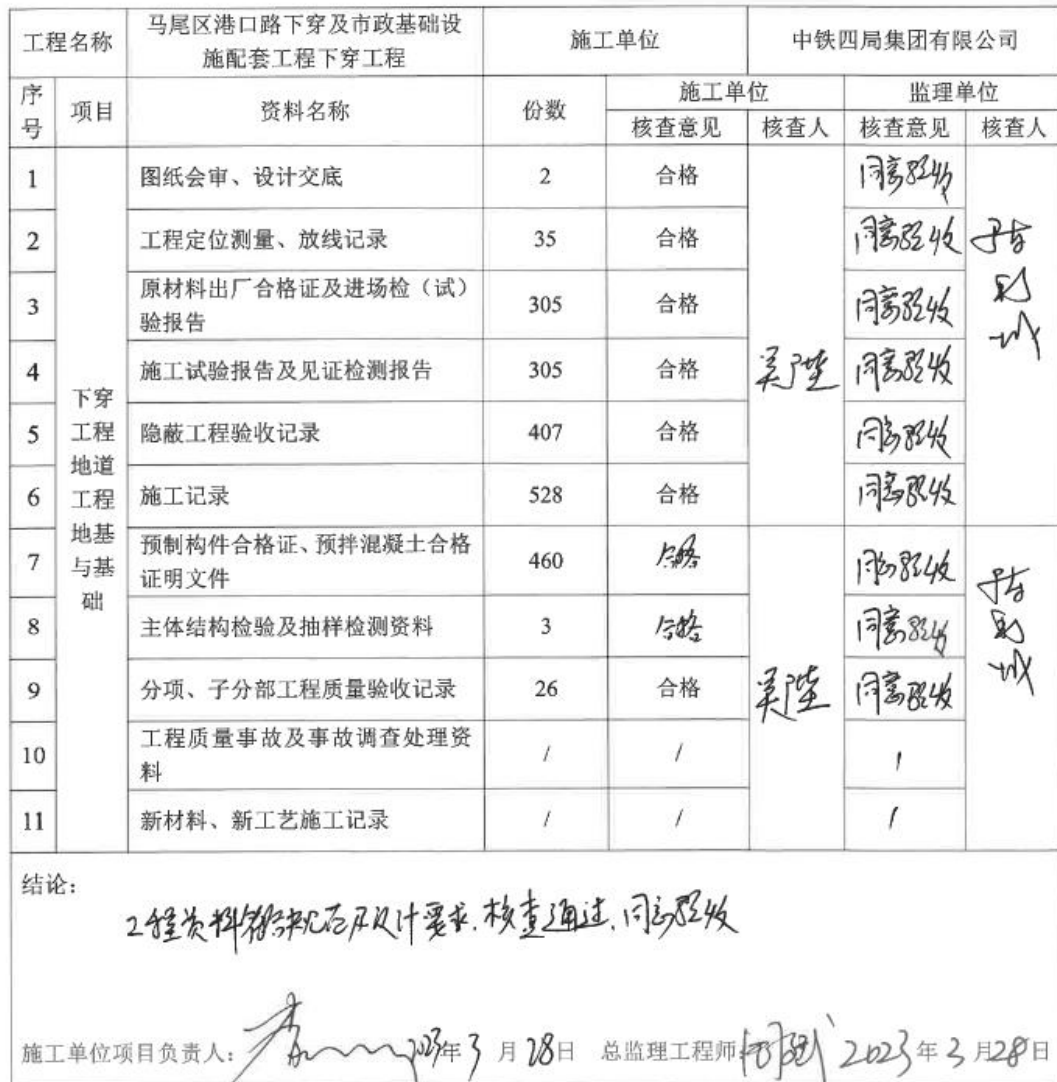 工程名称 马尾区港口路下穿及市政基础设 施工单位 中铁四局集团有限公司
施配套工程下穿工程
序号 项目 资料名称 份数 施工单位 监理单位
核查意见 核查人 核查意见 核查人
下穿工程地道工程地基与基础
1 图纸会审、设计交底 2 合格 同意验收
2 工程定位测量、放线记录 35 合格 同意验收
3 原材料出厂合格证及进场检（试） 305 合格 同意验收
验报告
4 施工试验报告及见证检测报告 305 合格 同意验收
5 隐蔽工程验收记录 407 合格 同意验收
6 施工记录 528 合格 同意验收
7 预制构件合格证、预拌混凝土合格 460 合格 同意验收
证明文件
8 主体结构检验及抽样检测资料 3 合格 同意验收
9 分项、子分部工程质量验收记录 26 合格 同意验收
10 工程质量事故及事故调查处理资 / / /
料
11 新材料、新工艺施工记录 / / /
结论：
工程资料符合规范及设计要求，核查通过，同意验收
施工单位项目负责人： 2023年3月28日 总监理工程师： 2023年3月28日